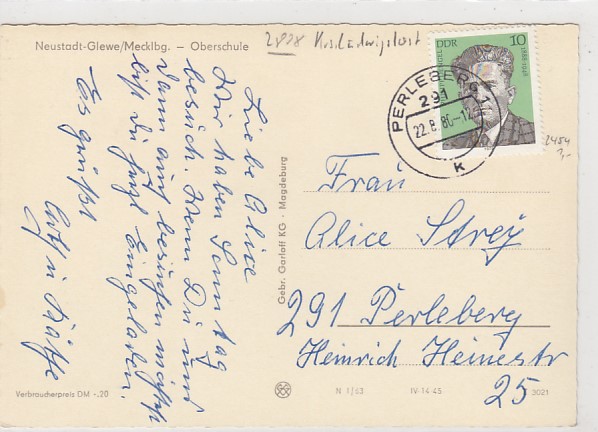 Neustadt-Glewe/Mecklbg. — Oberschule
2808 Krs. Ludwigslust
DDR 10
1888-1948
PERLEBERG 1
291
22.8.80-12
K
2454
Liebe Alice
Wir haben Sonntag
besuch. Wenn Du uns
dann auch besuchen möchst
bist du herzl. Eingeladen.
Es grüßt
u. Käthe
Gebr. Garloff KG · Magdeburg
Frau
Alice Strey
291 Perleberg
Heinrich Heinestr
25
Verbraucherpreis DM -.20
N 1/63
IV-14-45
3021